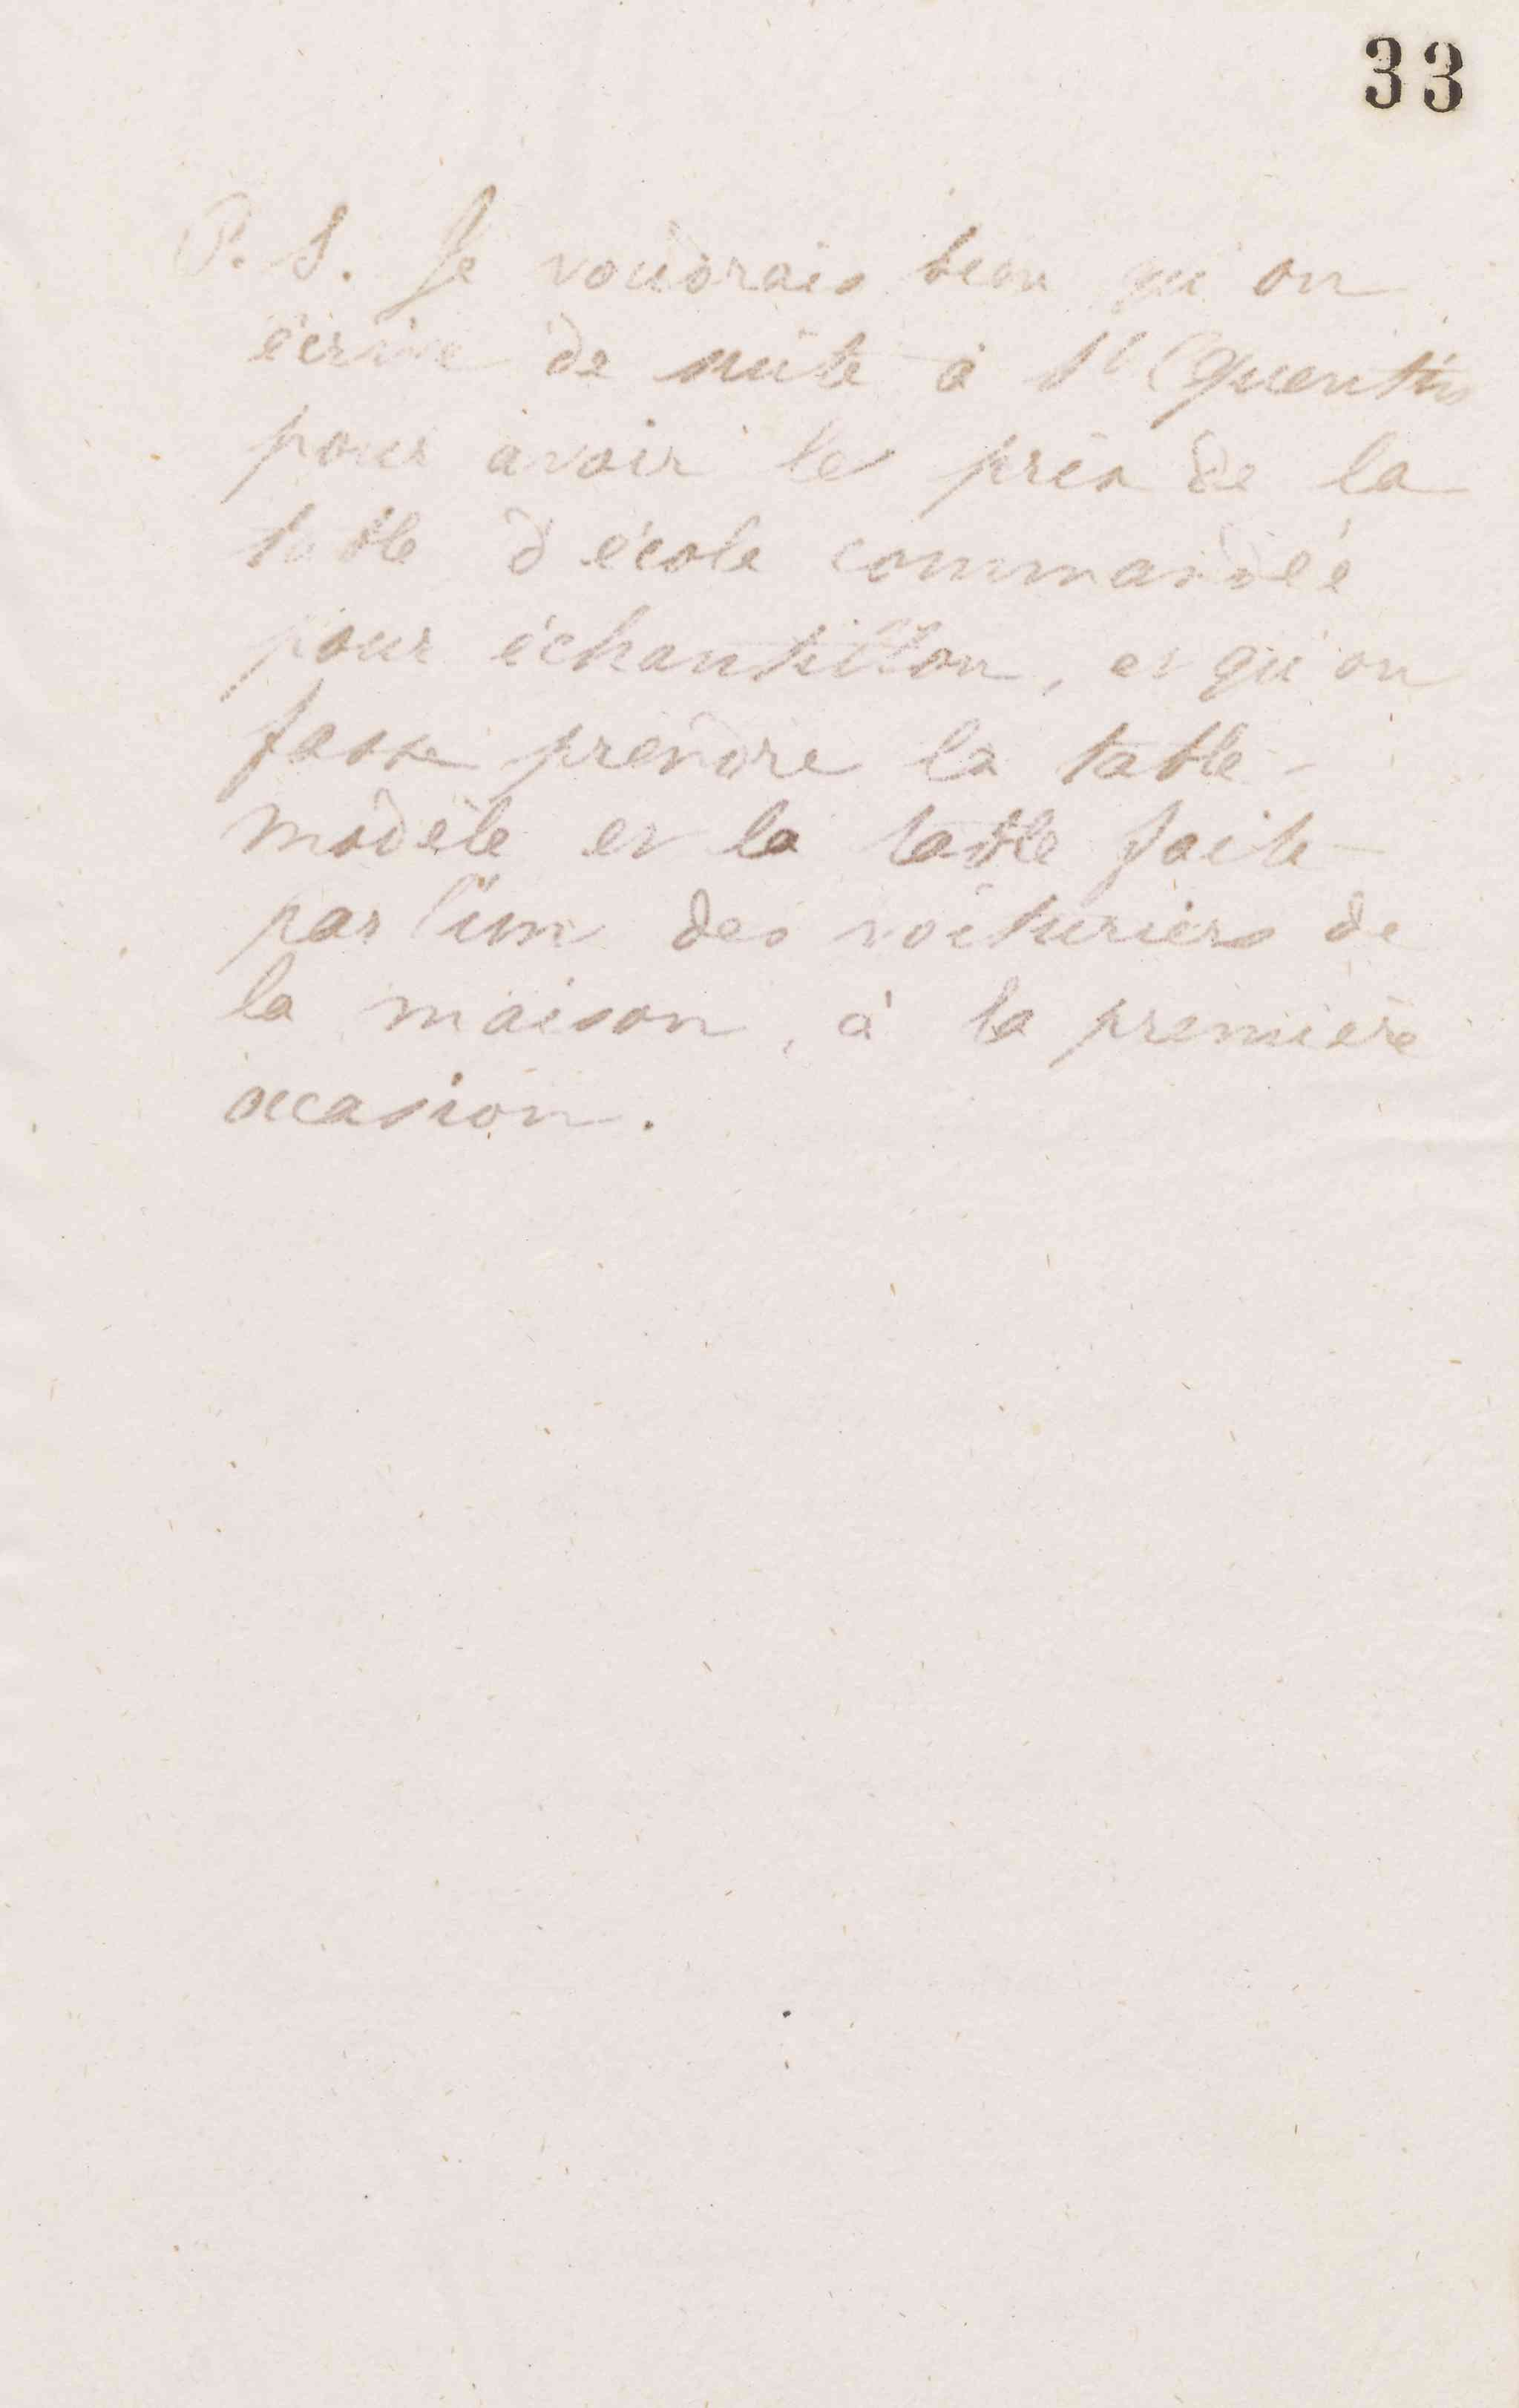 33
P. S. Je voudrais bien qu'on
écrive de suite à St Quentin
pour avoir le prix de la
table d'école commandée
pour échantillon, et qu'on
fasse prendre la table-
modèle et la table faite
par l'un des voituriers de
la maison, à la première
occasion.